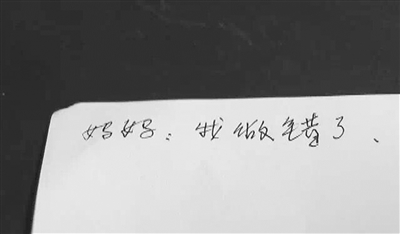 妈妈：我做错了、